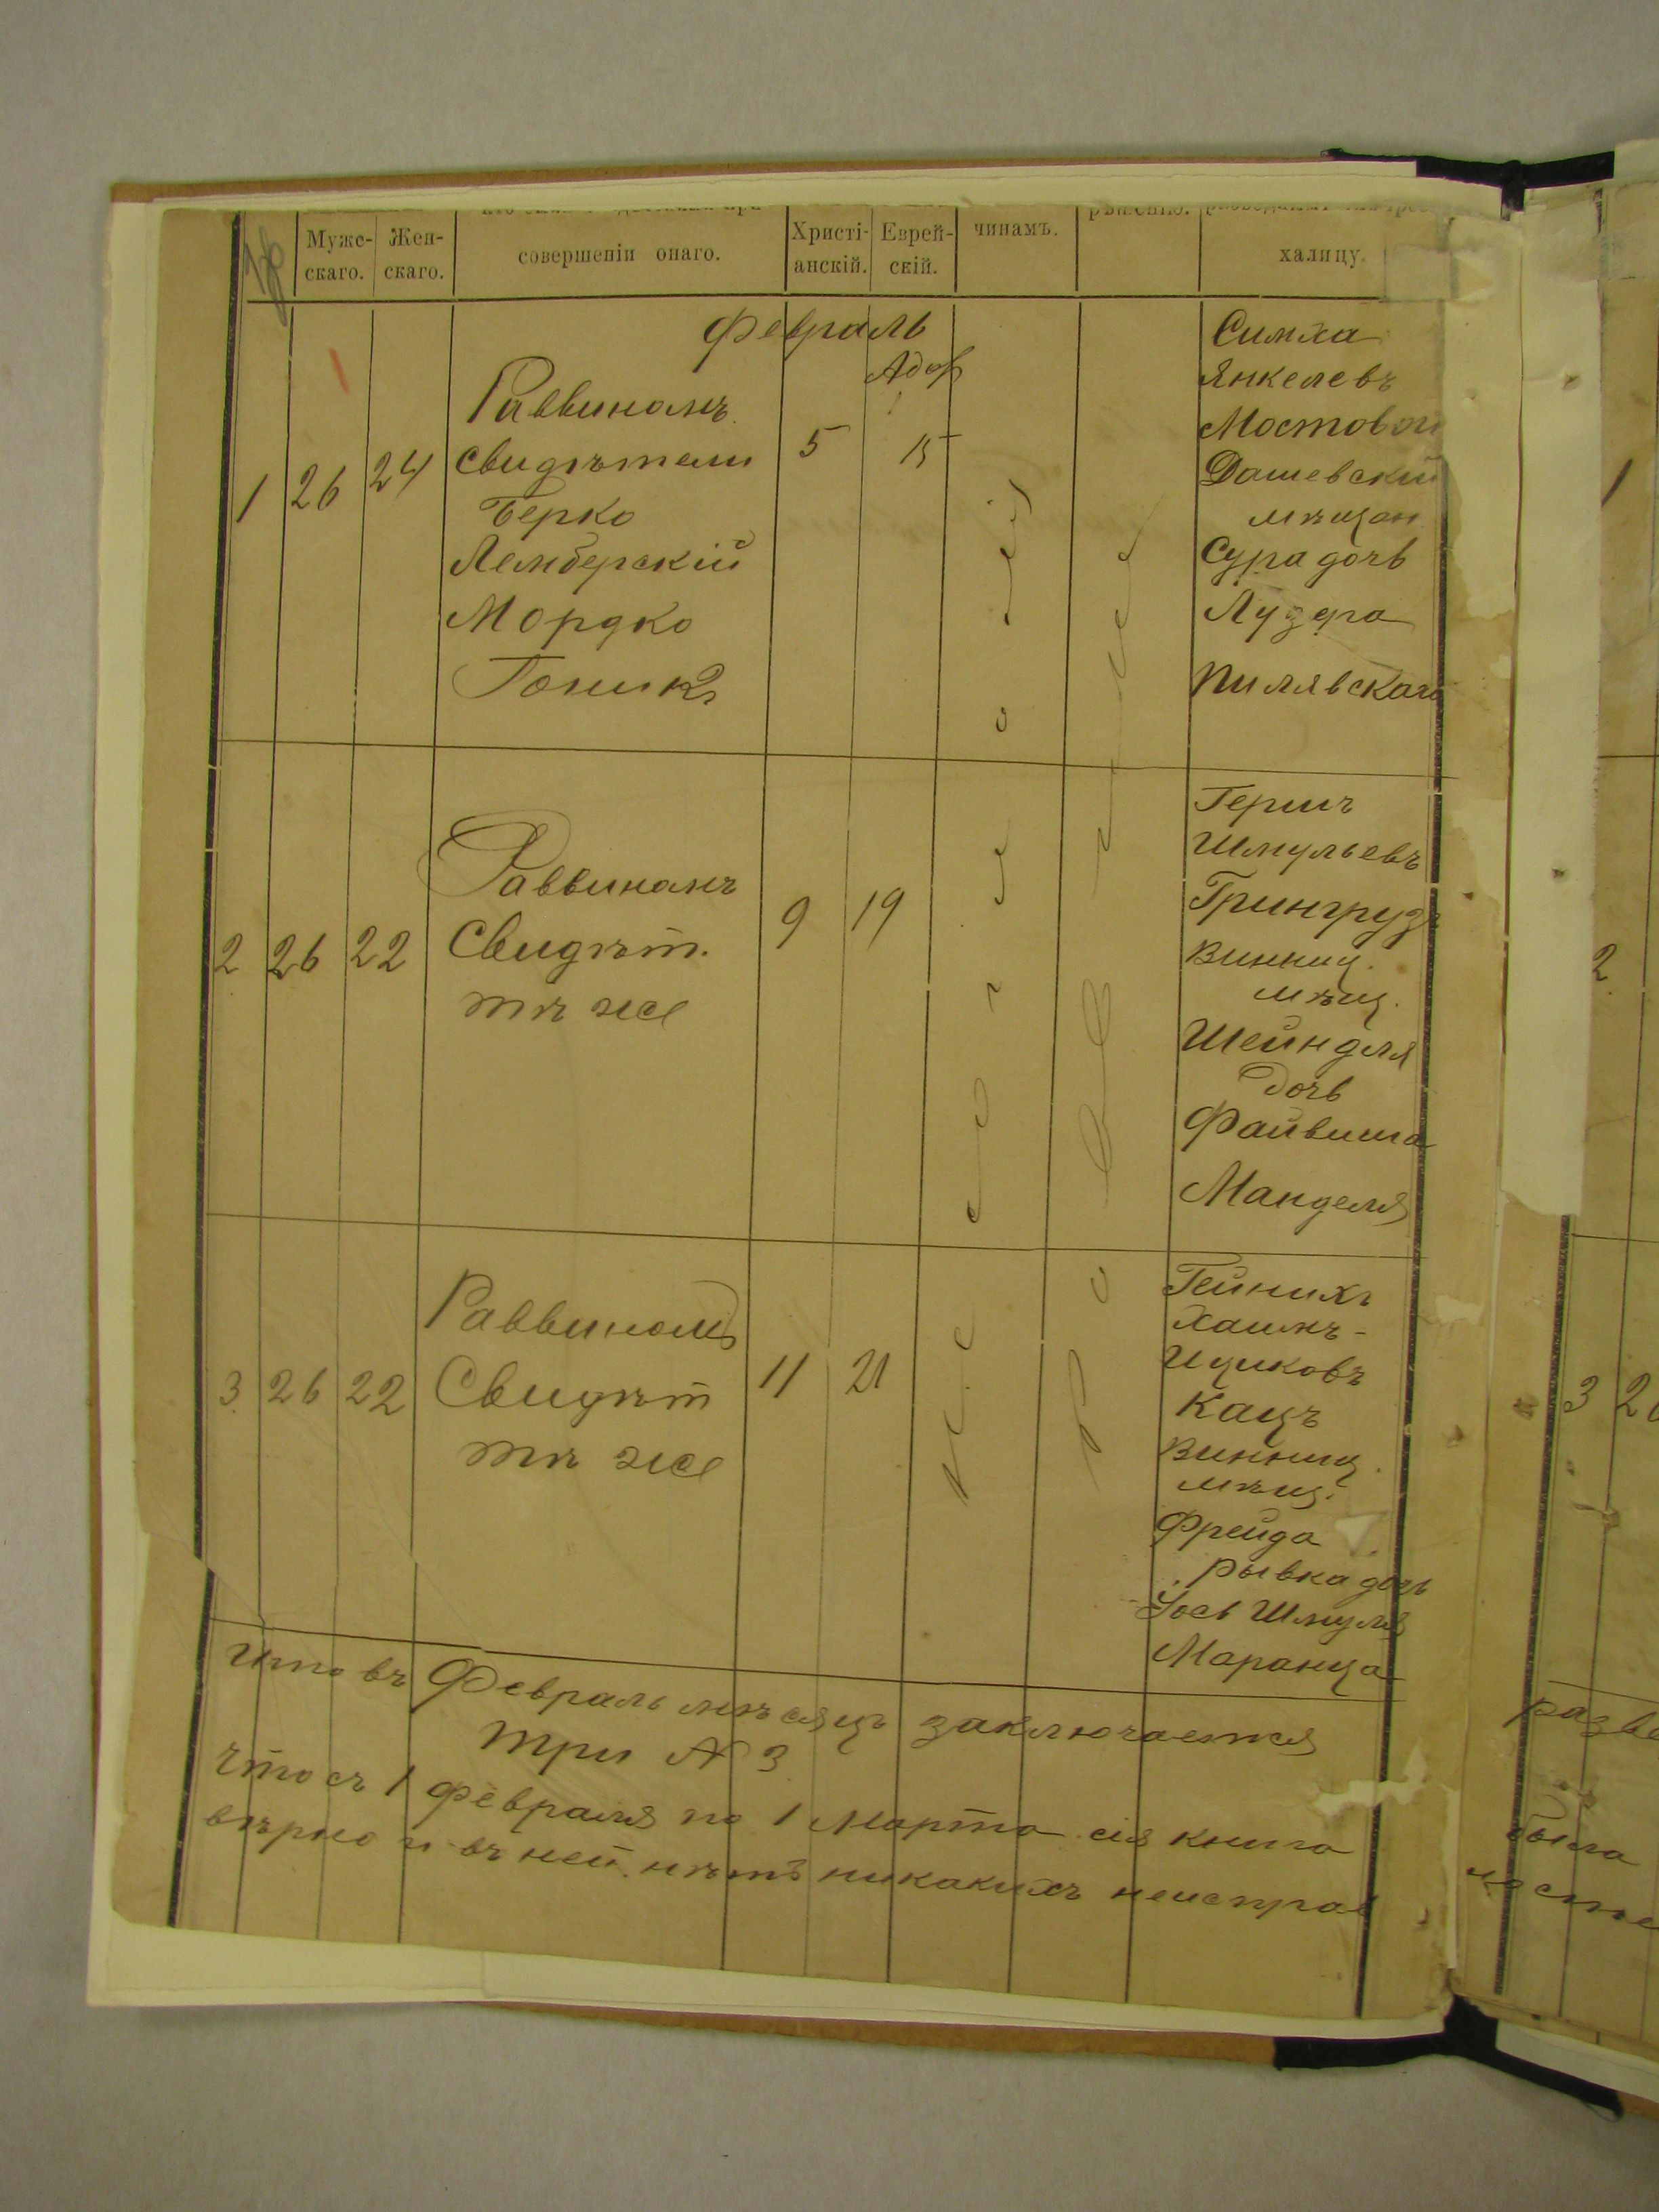 Муже-
скаго.
Жен-
скаго.
совершеніи онаго.
Христі-
анскій.
Еврей-
скій.
чинамъ.
рѣшенію.
халицу.
Февраль
Адоръ
1 26 24
Раввиномъ
свидѣтели
Берко
Лемберскій
Мордко
Гоникъ
5 15
по согласію
по разводе
Симха
Янкелевъ
Мостовой
Дашевскій
мѣщан.
Сура дочь
Лузера
Пилявскаго
2 26 22
Раввиномъ
Свидѣт.
тѣ же
9 19
Гершъ
Шмульевъ
Грингрузъ
Винниц.
мѣщ.
Шейндля
дочь
Файвиша
Манделя
3 26 22
Раввиномъ
Свидѣт
тѣ же
11 21
Гейнихъ
Хаимъ-
Ицковъ
Кацъ
Винниц.
мѣщ.
Фрейда
Рывка дочь
Іось Шмуля
Маранца
Что въ Февраль мѣсяцъ заключается
три № 3
Что съ 1 февраля по 1 Марта сія книга
вѣрно и въ ней нѣтъ никакихъ неисправ
1
2
3 2
разве
была